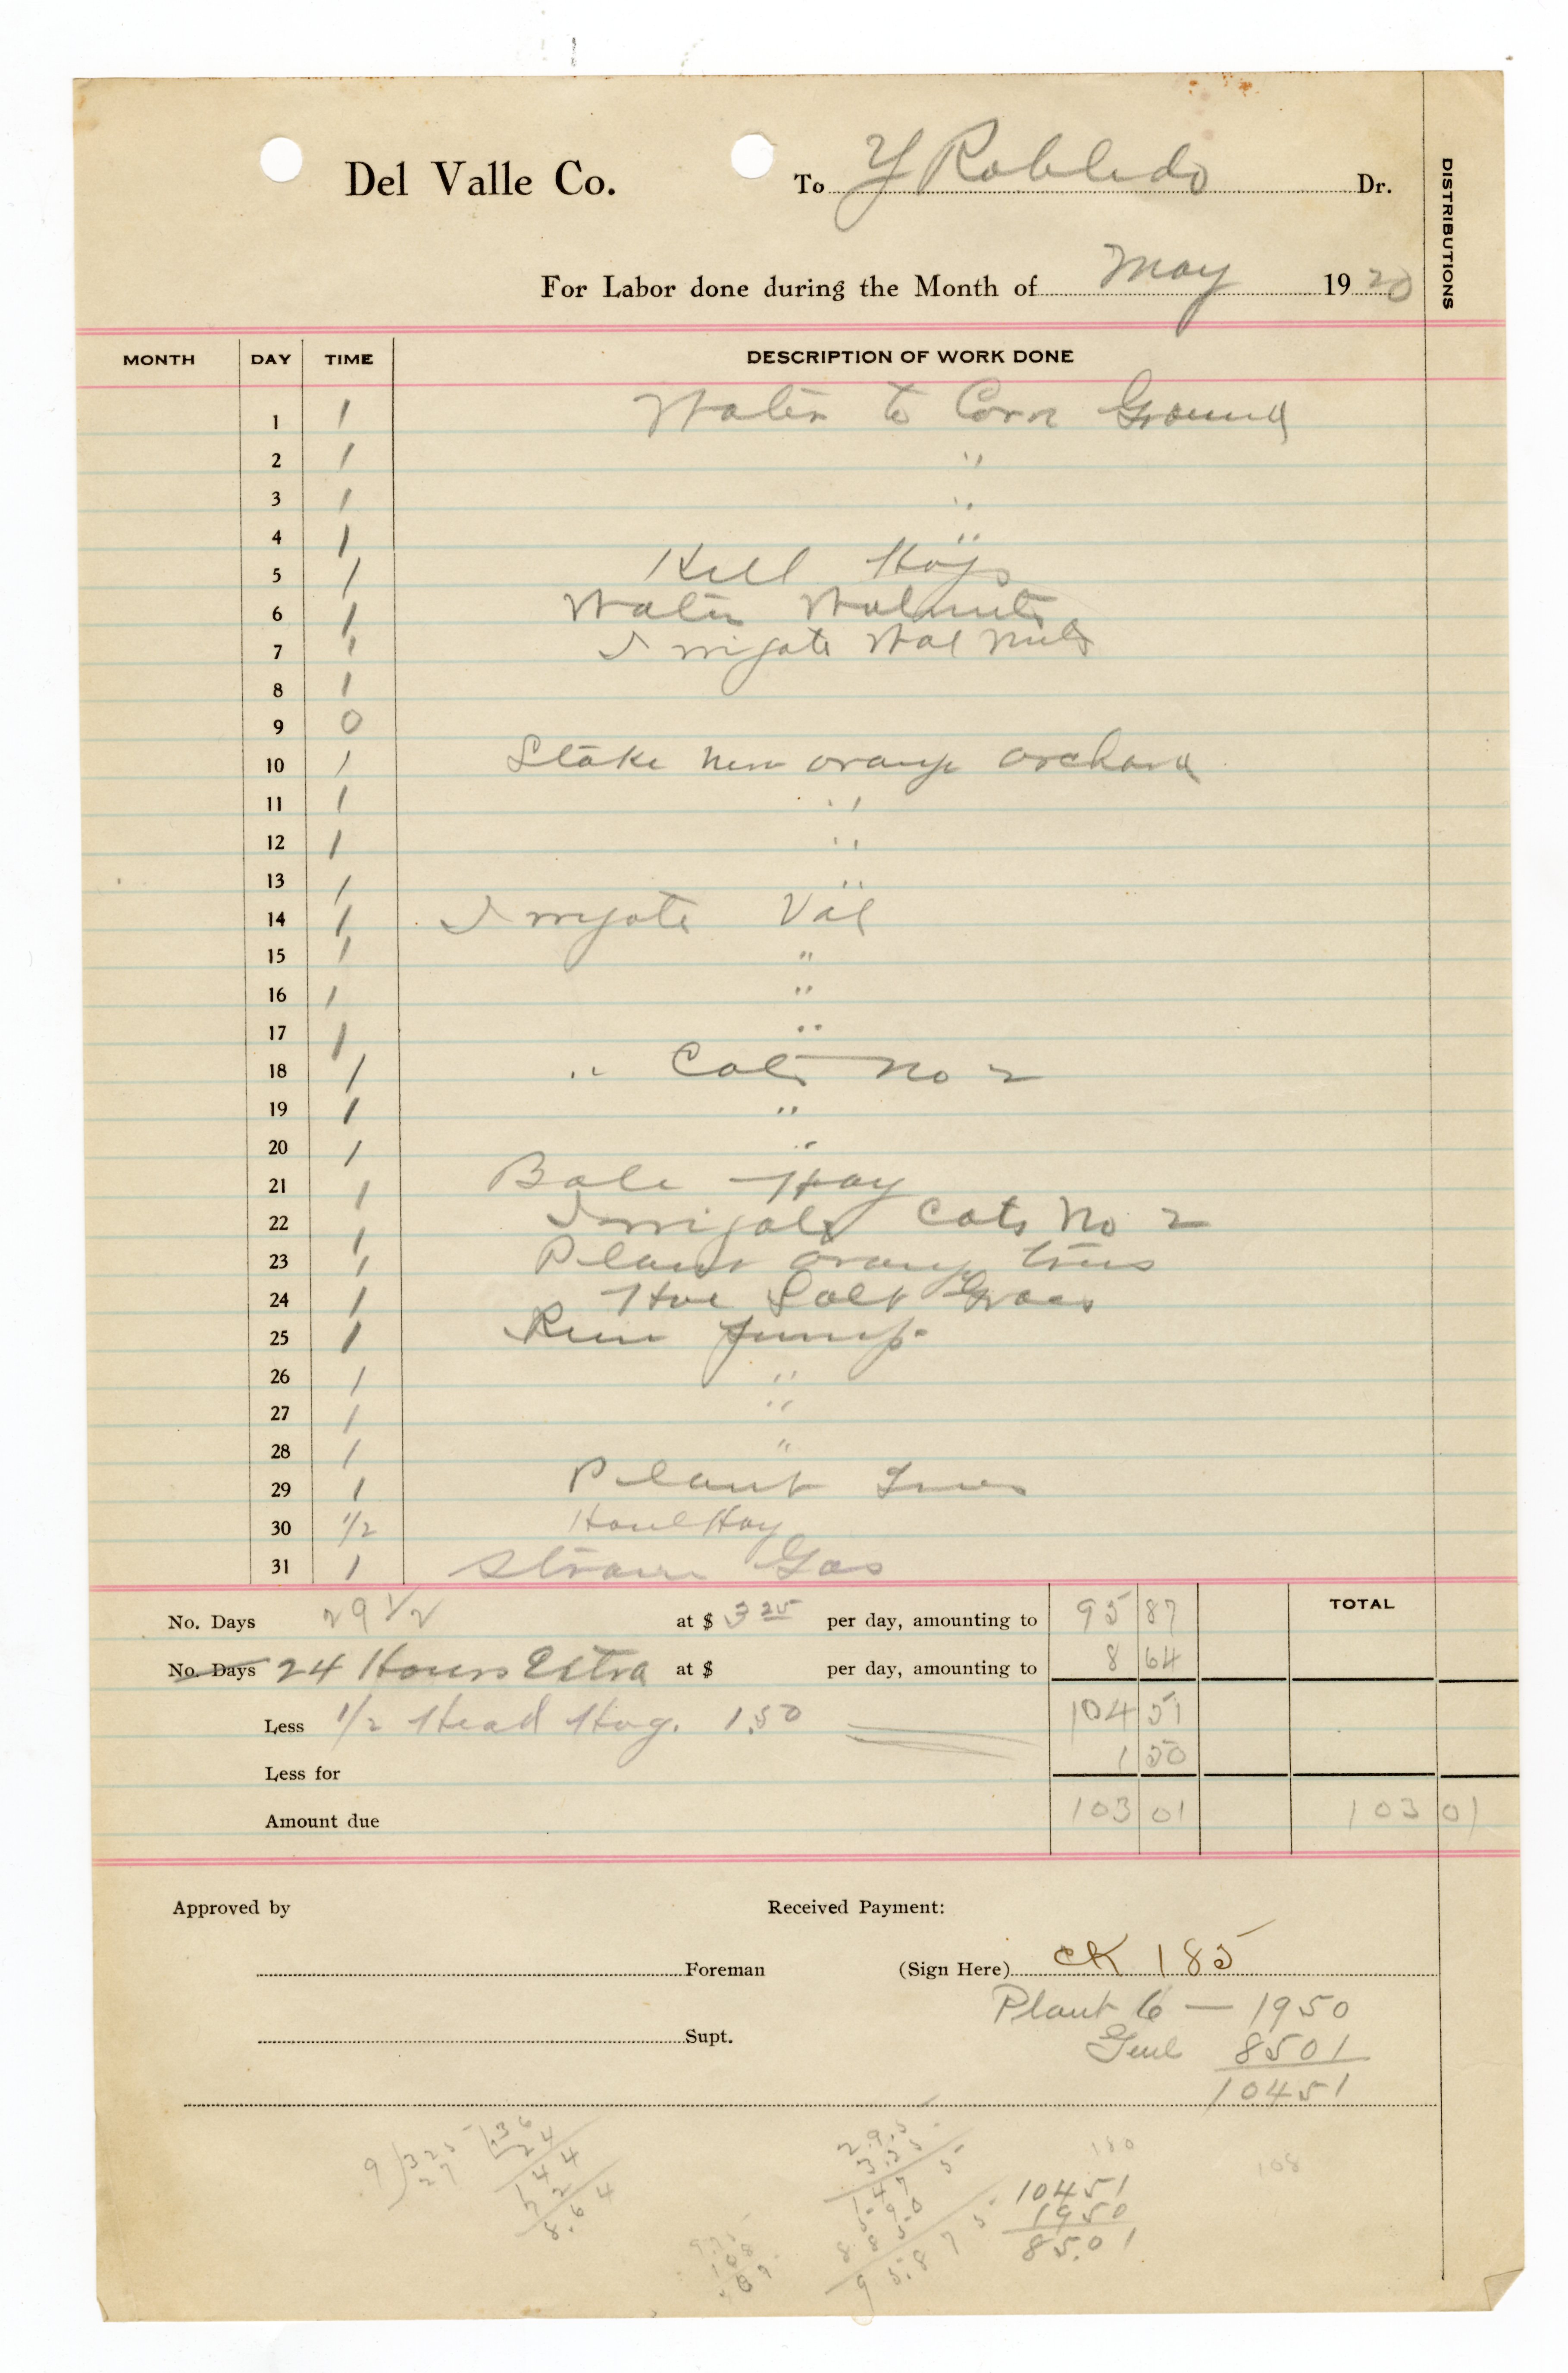 Del Valle Co. To Y Robledo Dr.
DISTRIBUTIONS
For Labor done during the Month of May 1920
MONTH DAY TIME DESCRIPTION OF WORK DONE
1 1 Water to Corn Ground
2 1 "
3 1 "
4 1 "
5 1 Kill Hogs
6 1 Water Walnuts
7 1 Irrigate Walnuts
8 1
9 0
10 1 Stake new orange orchard
11 1 "
12 1 "
13 1 "
14 1 Irrigate Val
15 1 "
16 1 "
17 1 "
18 1 " Cats No 2
19 1 "
20 1 "
21 1 Bale Hay
22 1 Irrigate Cats No 2
23 1 Plant orange trees
24 1 Hoe Salt Grass
25 1 Run pump.
26 1 "
27 1 "
28 1 "
29 1 Plant Trees
30 1/2 Haul Hay
31 1 Strain Gas
No. Days 29 1/2 at $ 3 25 per day, amounting to 95 87 TOTAL
No. Days 24 Hours Extra at $ per day, amounting to 8 64
Less 1/2 Head Hog. 1.50 104 51
Less for 1 50
Amount due 103 01 103 01
Approved by Received Payment:
Foreman (Sign Here) CK 185
Plant 6 — 1950
Supt. Genl 8501
10451
9)325 .36
27 24
144
72
8.64
29.5
3.25
1475
590
885
95.875
180
108
10451
1950
85.01